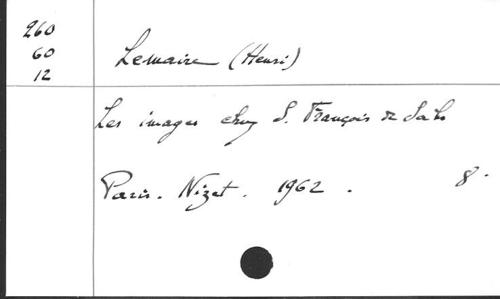 260
60
12
Lemaire (Henri)
Les images chez S. François de Sales
Paris. Nizet. 1962. 8°